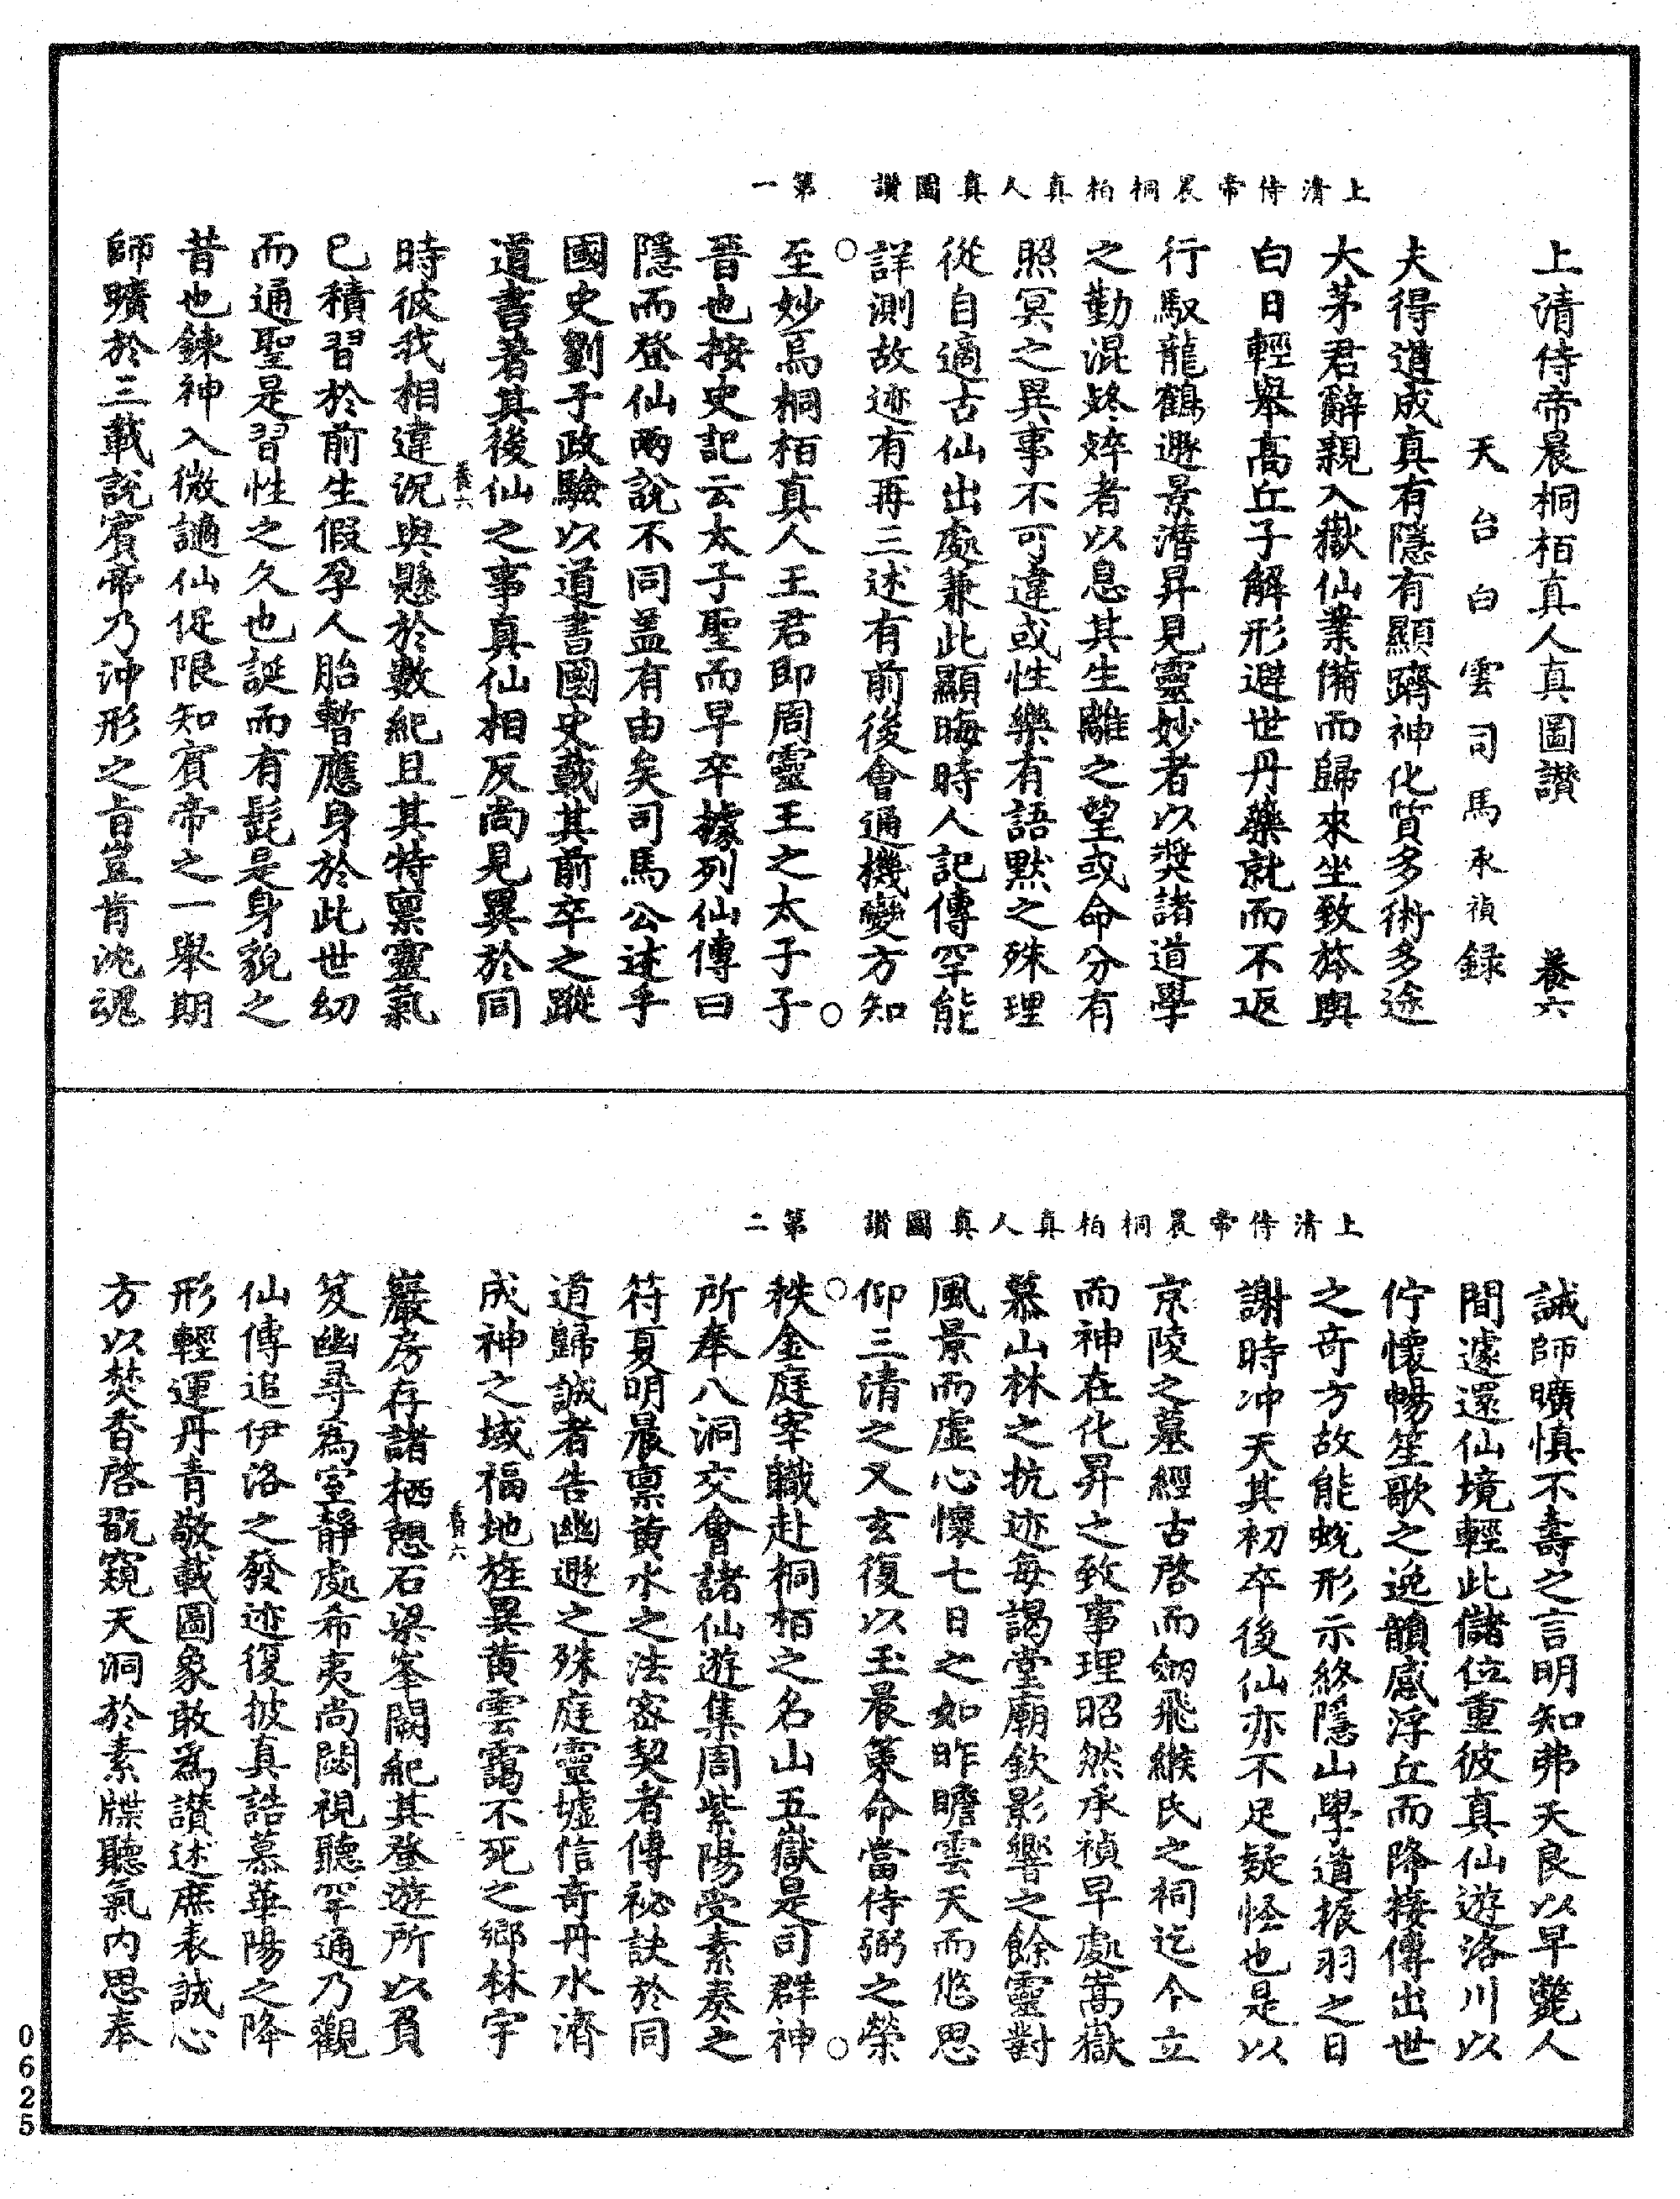 上清侍帝晨桐柏真人真圖讚　第一
上清侍帝晨桐栢真人真圖讚　養六
天台白雲司馬承禎録
夫得道成真有隱有顯躋神化質多術多途
大茅君辭親入嶽仙業備而歸來坐致軨輿
白日輕舉高丘子解形避世丹藥就而不返
行馭龍鶴遯景潜昇見靈妙者以奬諸道學
之勤混終婞者以息其生離之望或命分有
照冥之異事不可違或性樂有語默之殊理
從自適古仙出處兼此顯晦時人記傳罕能
詳測故迹有再三述有前後會通機變方知
至妙焉桐栢真人王君即周靈王之太子子
晉也按史記云太子聖而早卒據列仙傳曰
隱而登仙兩說不同盖有由矣司馬公述乎
國史劉子政驗以道書國史載其前卒之蹤
道書著其後仙之事真仙相反尚見異於同
養六　一
時彼我相違況與懸於數紀且其特禀靈氣
已積習於前生假孕人胎暫應身於此世幼
而通聖是習性之久也誕而有髭是身貌之
昔也鍊神入微謫仙促限知賓帝之一舉期
師曠於三載說賓帝乃沖形之旨豈肯沌魂
上清侍帝晨桐柏真人真圖讚　第二
誠師曠慎不壽之言明知弗夭良以早斃人
間遽還仙境輕此儲位重彼真仙遊洛川以
佇懷暢笙歌之逸韻感浮丘而降接傳出世
之奇方故能蛻形示終隱山學道振羽之日
謝時冲天其初卒後仙亦不足疑怪也是以
京陵之墓經古啓而劒飛緱氏之祠迄今立
而神在化昇之致事理昭然承禎早處嵩嶽
慕山林之抗迹每謁堂廟欽影響之餘靈對
風景而虛心懷七日之如昨瞻雲天而㤰思
仰三清之又玄復以玉晨策命當侍弼之榮
秩金庭宰職赴桐栢之名山五嶽是司群神
所奉八洞交會諸仙遊集周紫陽受素奏之
符夏明晨禀黃水之法密契者傳祕訣於同
道歸誠者告幽遯之殊庭靈墟信奇丹水濟
成神之域福地旌異黃雲靄不死之鄉林宇
養六　二
巖房存諸栖憩石梁峯闕紀其登遊所以負
笈幽尋為室靜處希夷尚閟視聽罕通乃觀
仙傳追伊洛之發迹復披真誥慕華陽之降
形輕運丹青敬載圖象敢為讚述庶表誠心
方以焚香啓翫窺天洞於素牒聽氣內思奉
0625